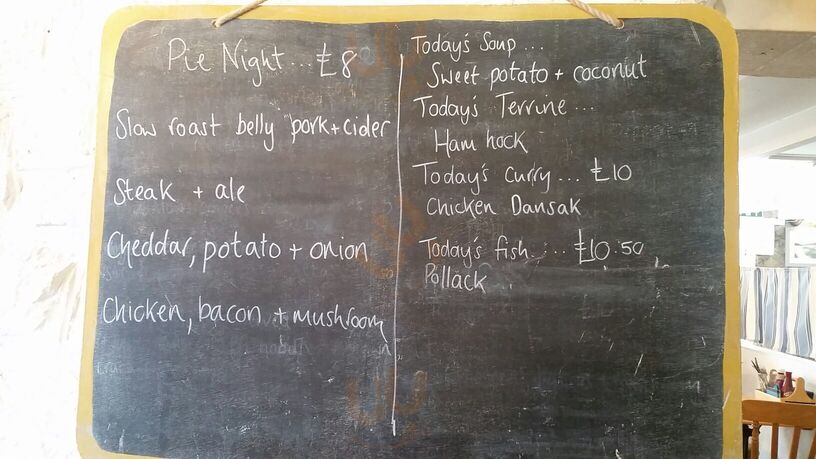 Pie Night... £8
Slow roast belly pork + cider
Steak + ale
Cheddar, potato + onion
Chicken, bacon + mushroom
Today's Soup ...
Sweet potato + coconut
Today's Terrine ...
Ham hock
Today's curry ... £10
Chicken Dansak
Today's fish ... £10.50
Pollack